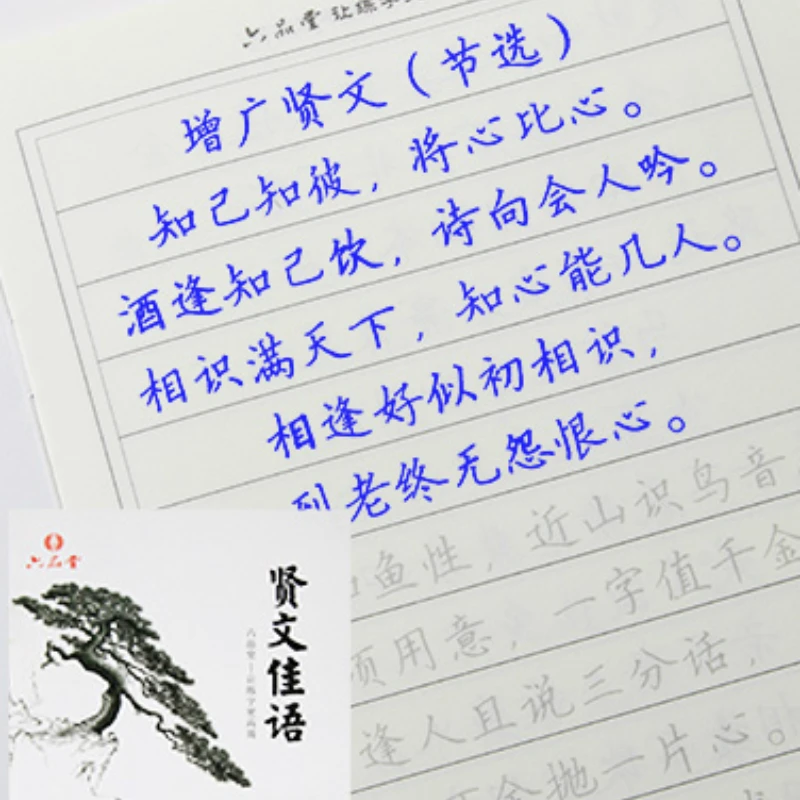 六品堂 让练字
增广贤文（节选）
知己知彼，将心比心。
酒逢知己饮，诗向会人吟。
相识满天下，知心能几人。
相逢好似初相识，
到老终无怨恨心。
鱼性，近山识鸟音
用意，一字值千金
逢人且说三分话，
抛一片心。
六品堂
贤文佳语